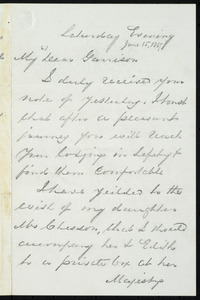 Saturday Evening
June 15, 1867
My Dear Garrison
I duly received your
note of yesterday. I trust
that after a pleasant
journey you will reach
your lodging in safety &
find them comfortable
I have yeilded to the
wish of my daughter
Mrs Chesson, that I should
accompany her & Edith
to a private box at her
Majestys